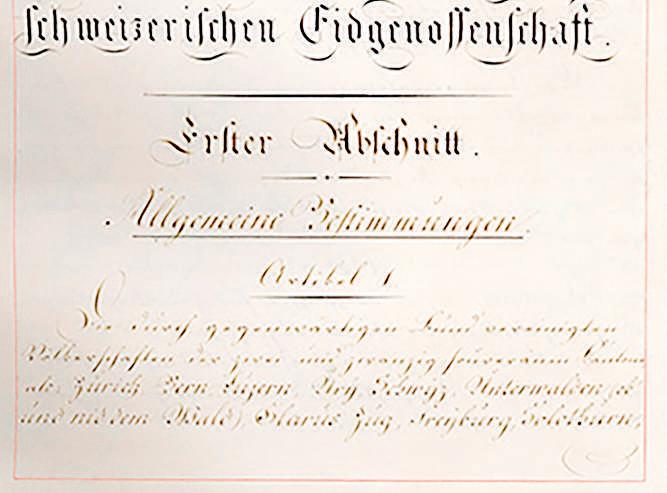 schweizerischen Eidgenossenschaft.
Erster Abschnitt.
Allgemeine Bestimmungen.
Artikel 1.
Die durch gegenwärtigen Bund vereinigten
Völkerschaften der zwei und zwanzig souveränen Cantone
als: Zürich, Bern, Luzern, Ury, Schwyz, Unterwalden (ob
und nid dem Wald), Glarus, Zug, Freyburg, Solothurn,